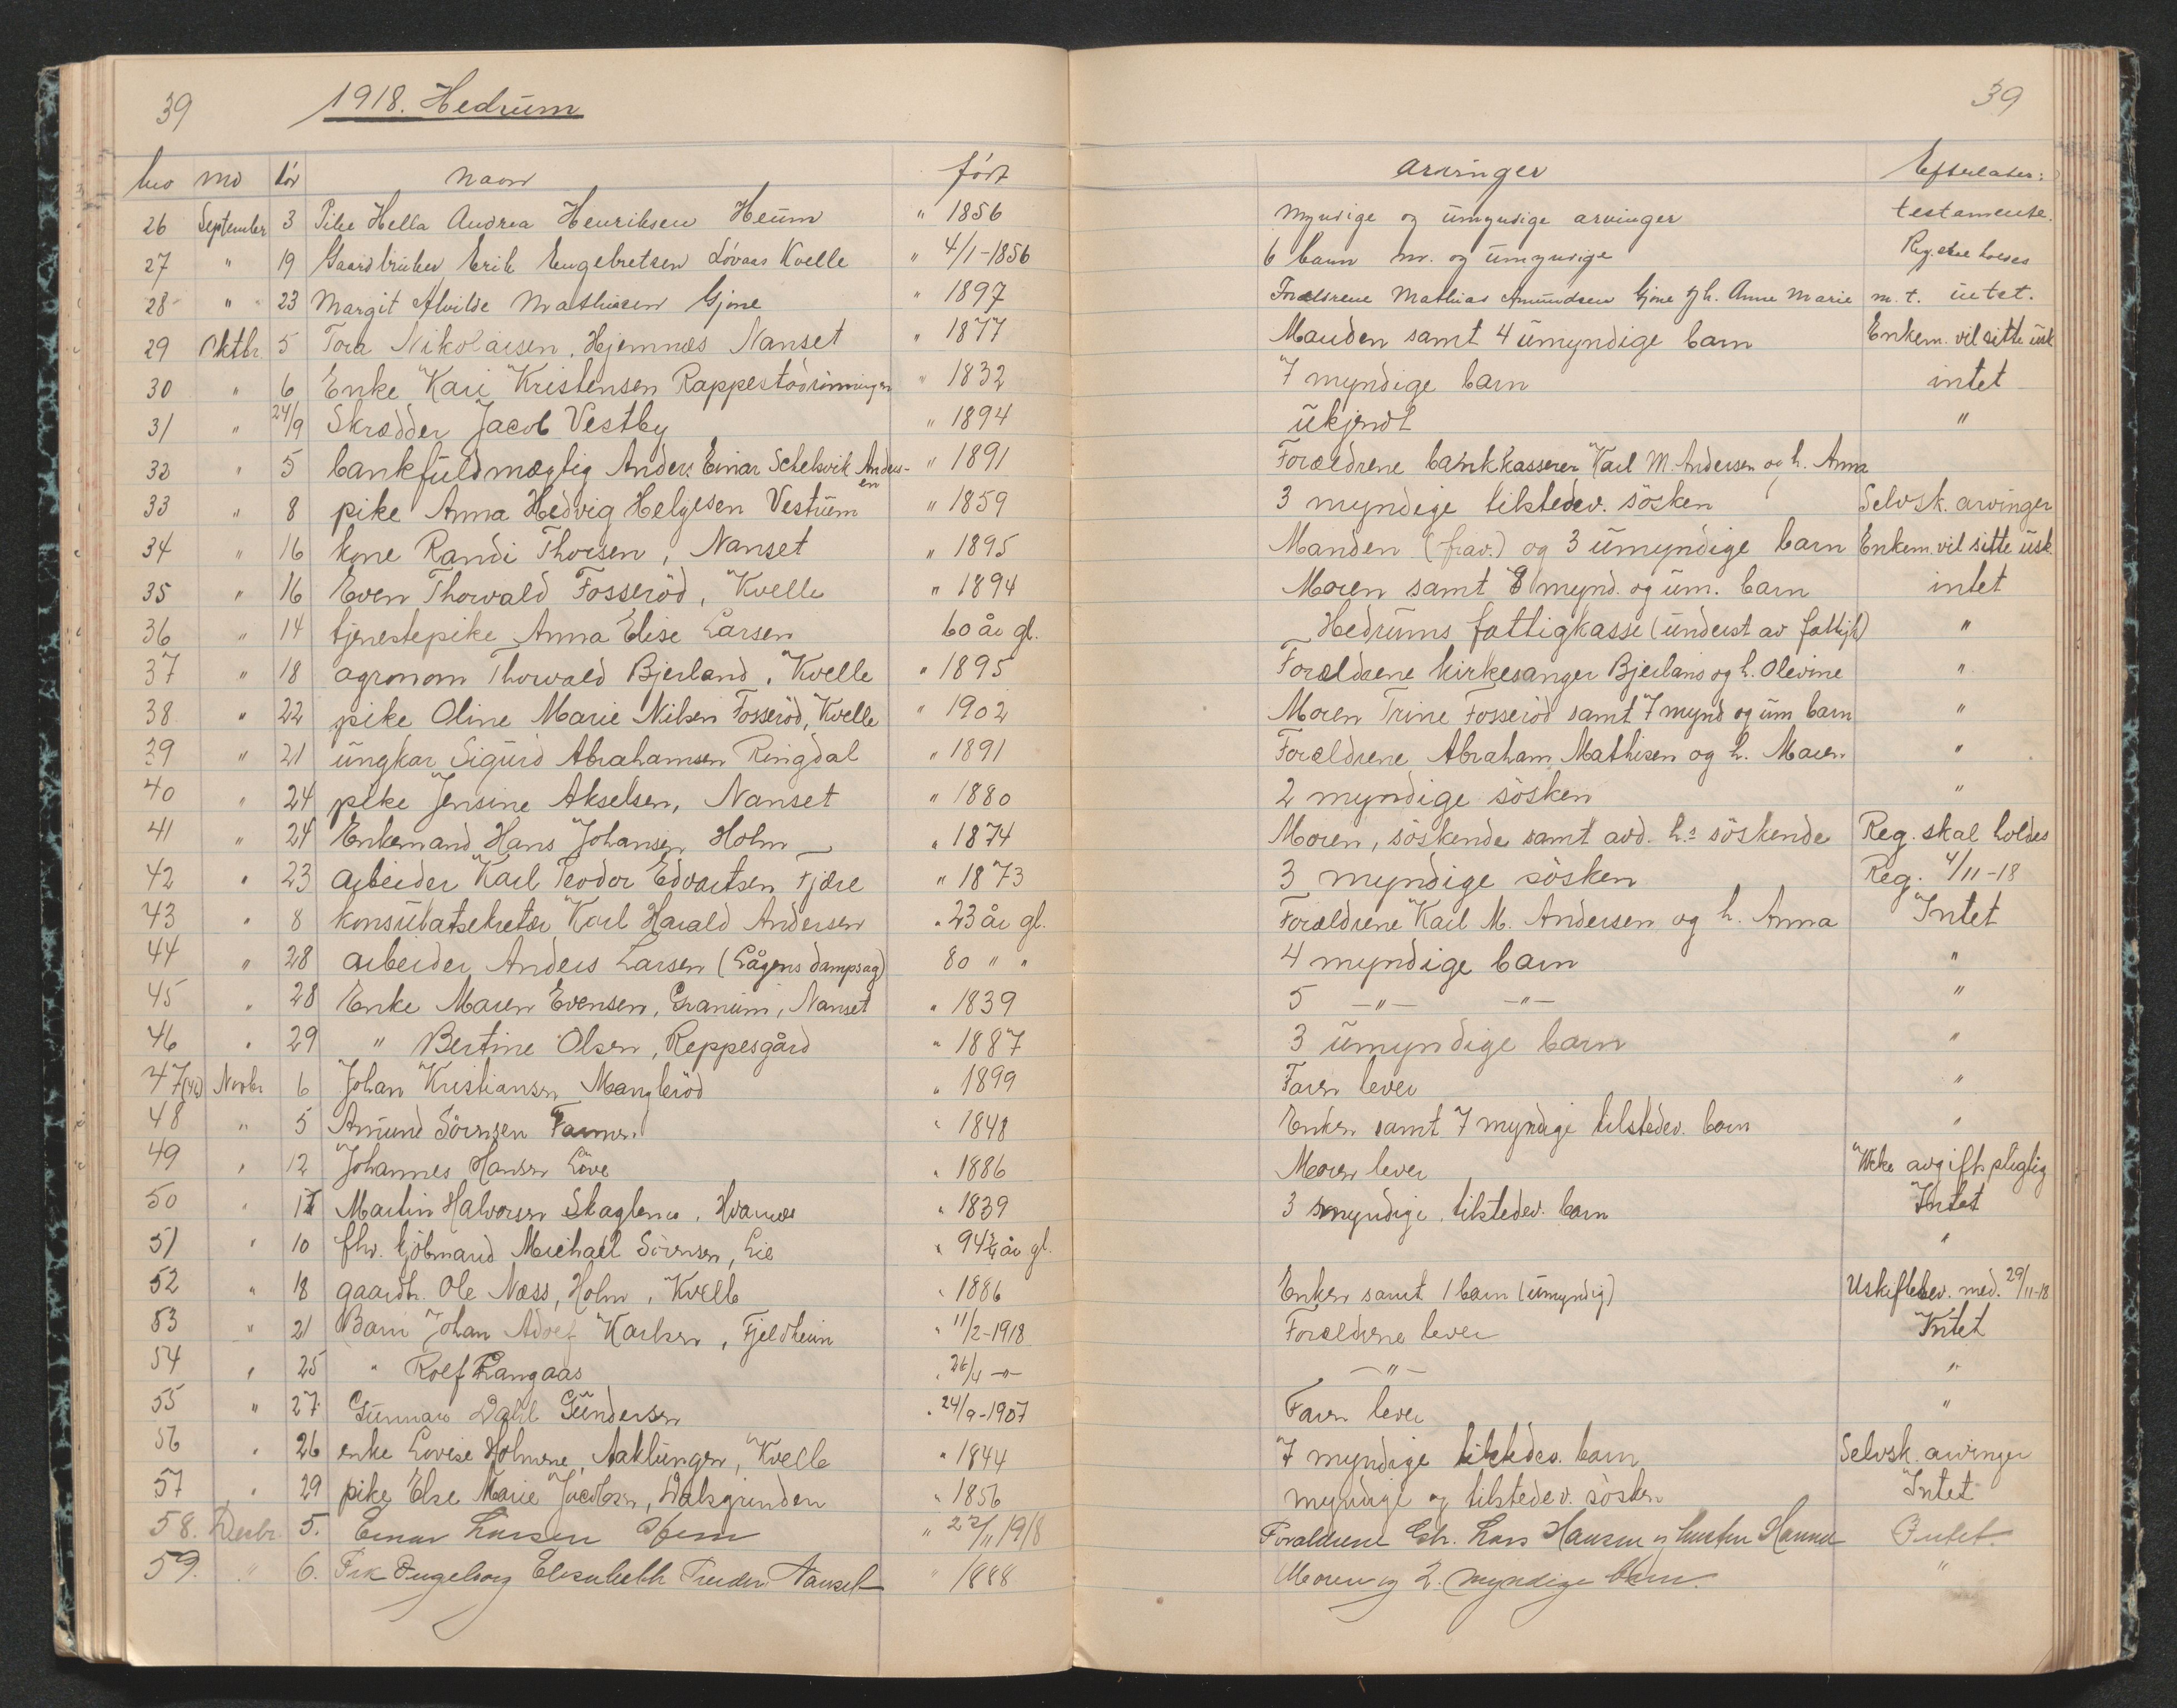 39 1918. Hedrum 39
No md dør navn født arvinger Efterlater:
26 September 3 Pike Hella Andrea Henriksen Heum " 1856 myndige og umyndige arvinger testamente.
27 " 19 Gaardbruker Erik Engebretsen Løvaas Kvelle " 4/1-1856 6 barn m. og umyndige Reg. skal holdes
28 " 23 Margit Alvilde Mathisen Gjone " 1897 Forældrene Mathias Amundsen Gjone og h. Anne Marie m. t. intet.
29 Oktbr. 5 Tora Nikolaisen, Hjemnes Nanset " 1877 Manden samt 4 umyndige barn Enkem. vil sitte usk.
30 " 6 Enke Kari Kristensen Rappestadrønningen " 1832 7 myndige barn intet
31 " 24/9 Skrædder Jacob Vestby " 1894 ukjendt "
32 " 5 bankfuldmægtig Anders Einar Schelsvik Andersen " 1891 Forældrene bankkasserer Karl M. Andersen og h. Anna
33 " 8 pike Anna Hedvig Helgesen Vestum " 1859 3 myndige tilstedev. søsken Selvsk. arvinger
34 " 16 kone Randi Thorsen, Nanset " 1895 Manden (frav.) og 3 umyndige barn Enkem. vil sitte usk.
35 " 16 Even Thorvald Fosserød, Kvelle " 1894 Moren samt 8 mynd. og um. barn intet
36 " 14 tjenestepike Anna Elise Larsen 60 år gl. Hedrums fattigkasse (underst av fattigk) "
37 " 18 agronom Thorvald Bjerland, Kvelle " 1895 Forældrene kirkesanger Bjerland og h. Olevine "
38 " 22 pike Oline Marie Nilsen Fosserød, Kvelle " 1902 Moren Trine Fosserød samt 7 mynd og um barn "
39 " 21 ungkar Sigurd Abrahamsen Ringdal " 1891 Forældrene Abraham Mathisen og h. Maren "
40 " 24 pike Jensine Akselsen, Nanset " 1880 2 myndige søsken "
41 " 24 Enkemand Hans Johansen Holm " 1874 Moren, søskende samt avd. h.s søskende Reg. skal holdes
42 " 23 arbeider Karl Teodor Edvartsen Fjære " 1873 3 myndige søsken Reg. 4/11-18
43 " 8 konsulatsekretær Karl Harald Andersen " 23 år gl. Forældrene Karl M. Andersen og h. Anna Intet
44 " 28 arbeider Anders Larsen (Lågens dampsag) 80 " " 4 myndige barn "
45 " 28 Enke Maren Evensen, Granum, Nanset " 1839 5 -"- -"- "
46 " 29 " Bertine Olsen, Reppesgård " 1887 3 umyndige barn "
47 Novbr 6 Johan Kristiansen Manglerød " 1899 Faren lever "
48 " 5 Amund Sörensen " 1848 Enken samt 7 myndige tilstedev. barn "
49 " 12 Johannes Hansen Löve " 1886 Moren lever Ikke avgiftspligtig
50 " Martin Halvorsen Skaglena, Hvarnes " 1839 3 myndige, tilstedev. barn Intet
51 " 10 fhv. kjöbmand Michael Sörensen, Lie " 94 3/4 år gl. "
52 " 18 gaardb. Ole Næss, Holm, Kvelle " 1886 Enken samt 1 barn (umyndig) Uskiftebev. med. 29/11-18
53 " 21 Barn Johan Adolf Karlsen, Fjeldheim " 11/2-1918 Forældrene lever Intet
54 " 25 " Rolf Langaas " 26/4 -"- -"- "
55 " 27 Gunnar Dahl Gundersen " 24/9-1907 Faren lever "
56 " 26 enke Lovise Holmene, Aaklungen, Kvelle " 1844 7 myndige tilstedev. barn Selvsk. arvinger
57 " 29 pike Else Marie Jacobsen, Dalsgrinden " 1856 myndige og tilstedev. søsken Intet
58. Desbr. 5. Einar Larsen " 22/11 1918 Forældrene Gbr. Lars Hansen og hustru Hanna Intet.
59. " 6. Frk Ingeborg Elisabeth Nanset " 1888 Moren og 2. myndige barn. "